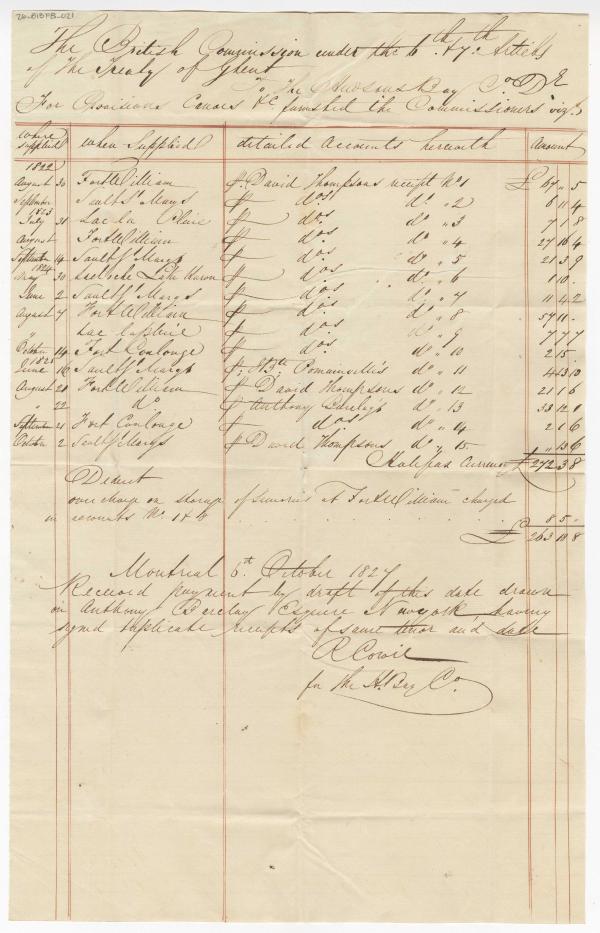 26-BIBFB-021
The British Commission under the 6th & 7th Articles
of The Treaty of Ghent
To The Hudsons Bay Co. Dr
For Provisions Canoes &c furnished the Commissioners viz.
where supplied when Supplied detailed Accounts herewith Amount
1822
August 30 Fort William David Thompsons receipt No 1 £ 67 " 5
September Sault St Marys do. do " 2 6 11 4
1823
July 31 Lac La Pluie do. do " 3 7 1 8
August Fort William do. do " 4 27 16 4
September 14 Sault St Marys do. do " 5 21 3 9
1824
May 30 Lake Huron do. do " 6 1 10 .
June 2 Sault St Marys do. do " 7 11 4 2
August 7 Fort William do. do " 8 59 11 .
" Lac La Pluie do. do " 9 7 7 7
October 14 Fort Coulonge do. do " 10 2 15 .
1825
June 16 Sault St Marys Pomainvilles do " 11 4 13 10
August 20 Fort William David Thompsons do " 12 21 1 6
" 22 do Anthony Barclay's do " 13 33 12 1
September 21 Fort Coulonge do. do " 14 2 1 6
October 2 Sault St Marys David Thompsons do " 15 " 13 6
Halifax Currency £ 272 3 8
Deduct
overcharge on storage of sundries at Fort William charged
in accounts No. 1 & 8 . . . . . 8 5 .
£ 263 18 8
Montreal 6th October 1827
Received payment by draft of this date drawn
on Anthony Barclay Esquire Newyork, having
signed duplicate receipts of same tenor and date
R Cowie
for the H. Bay Co.